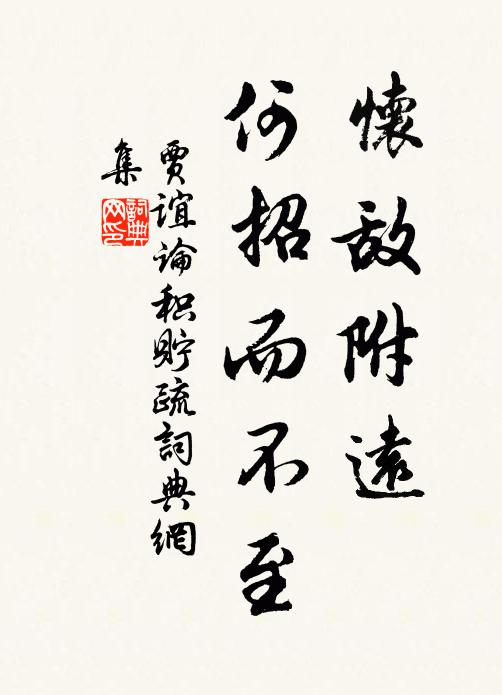 懷敌附遠
何招而不至
賈誼論积貯疏詞典網
集
詞典
网印